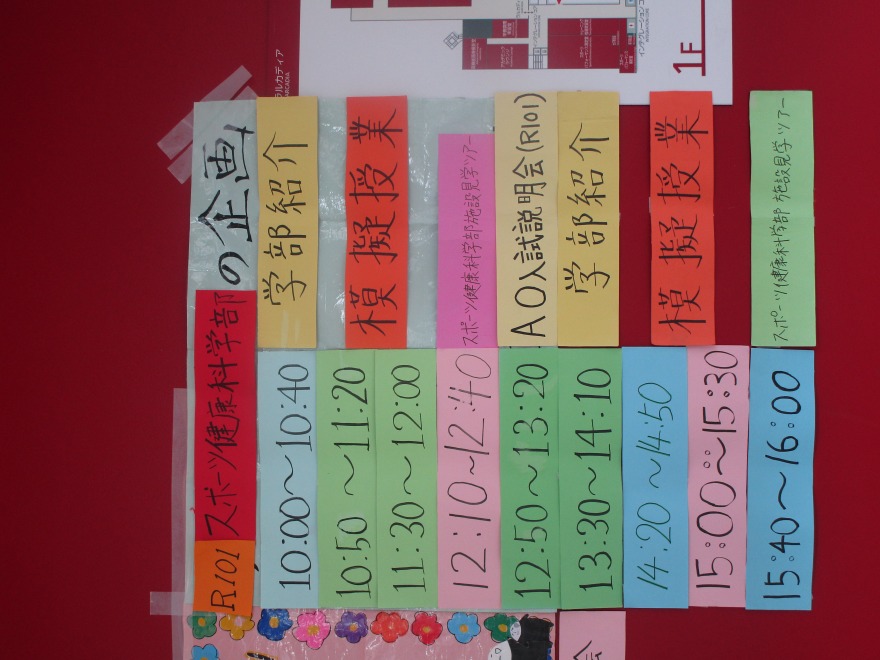 ラルカディア
ARCADIA
1F
R101 スポーツ健康科学部の企画
10:00～10:40 学部紹介
10:50～11:20
模擬授業
11:30～12:00
12:10～12:40 スポーツ健康科学部施設見学ツアー
12:50～13:20 AO入試説明会(R101)
13:30～14:10 学部紹介
14:20～14:50
模擬授業
15:00～15:30
15:40～16:00 スポーツ健康科学部 施設見学ツアー